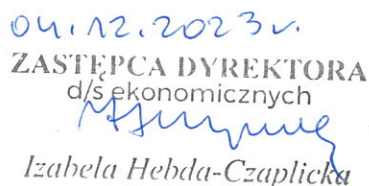 04.12.2023r.
ZASTĘPCA DYREKTORA
d/s ekonomicznych
Izabela Hebda-Czaplicka